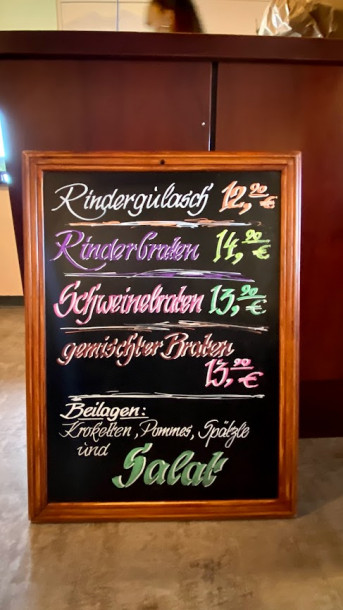 Rindergulasch 12,90 €
Rinderbraten 14,90 €
Schweinebraten 13,90 €
gemischter Braten
13,90 €
Beilagen:
Kroketten, Pommes, Spätzle
und Salat